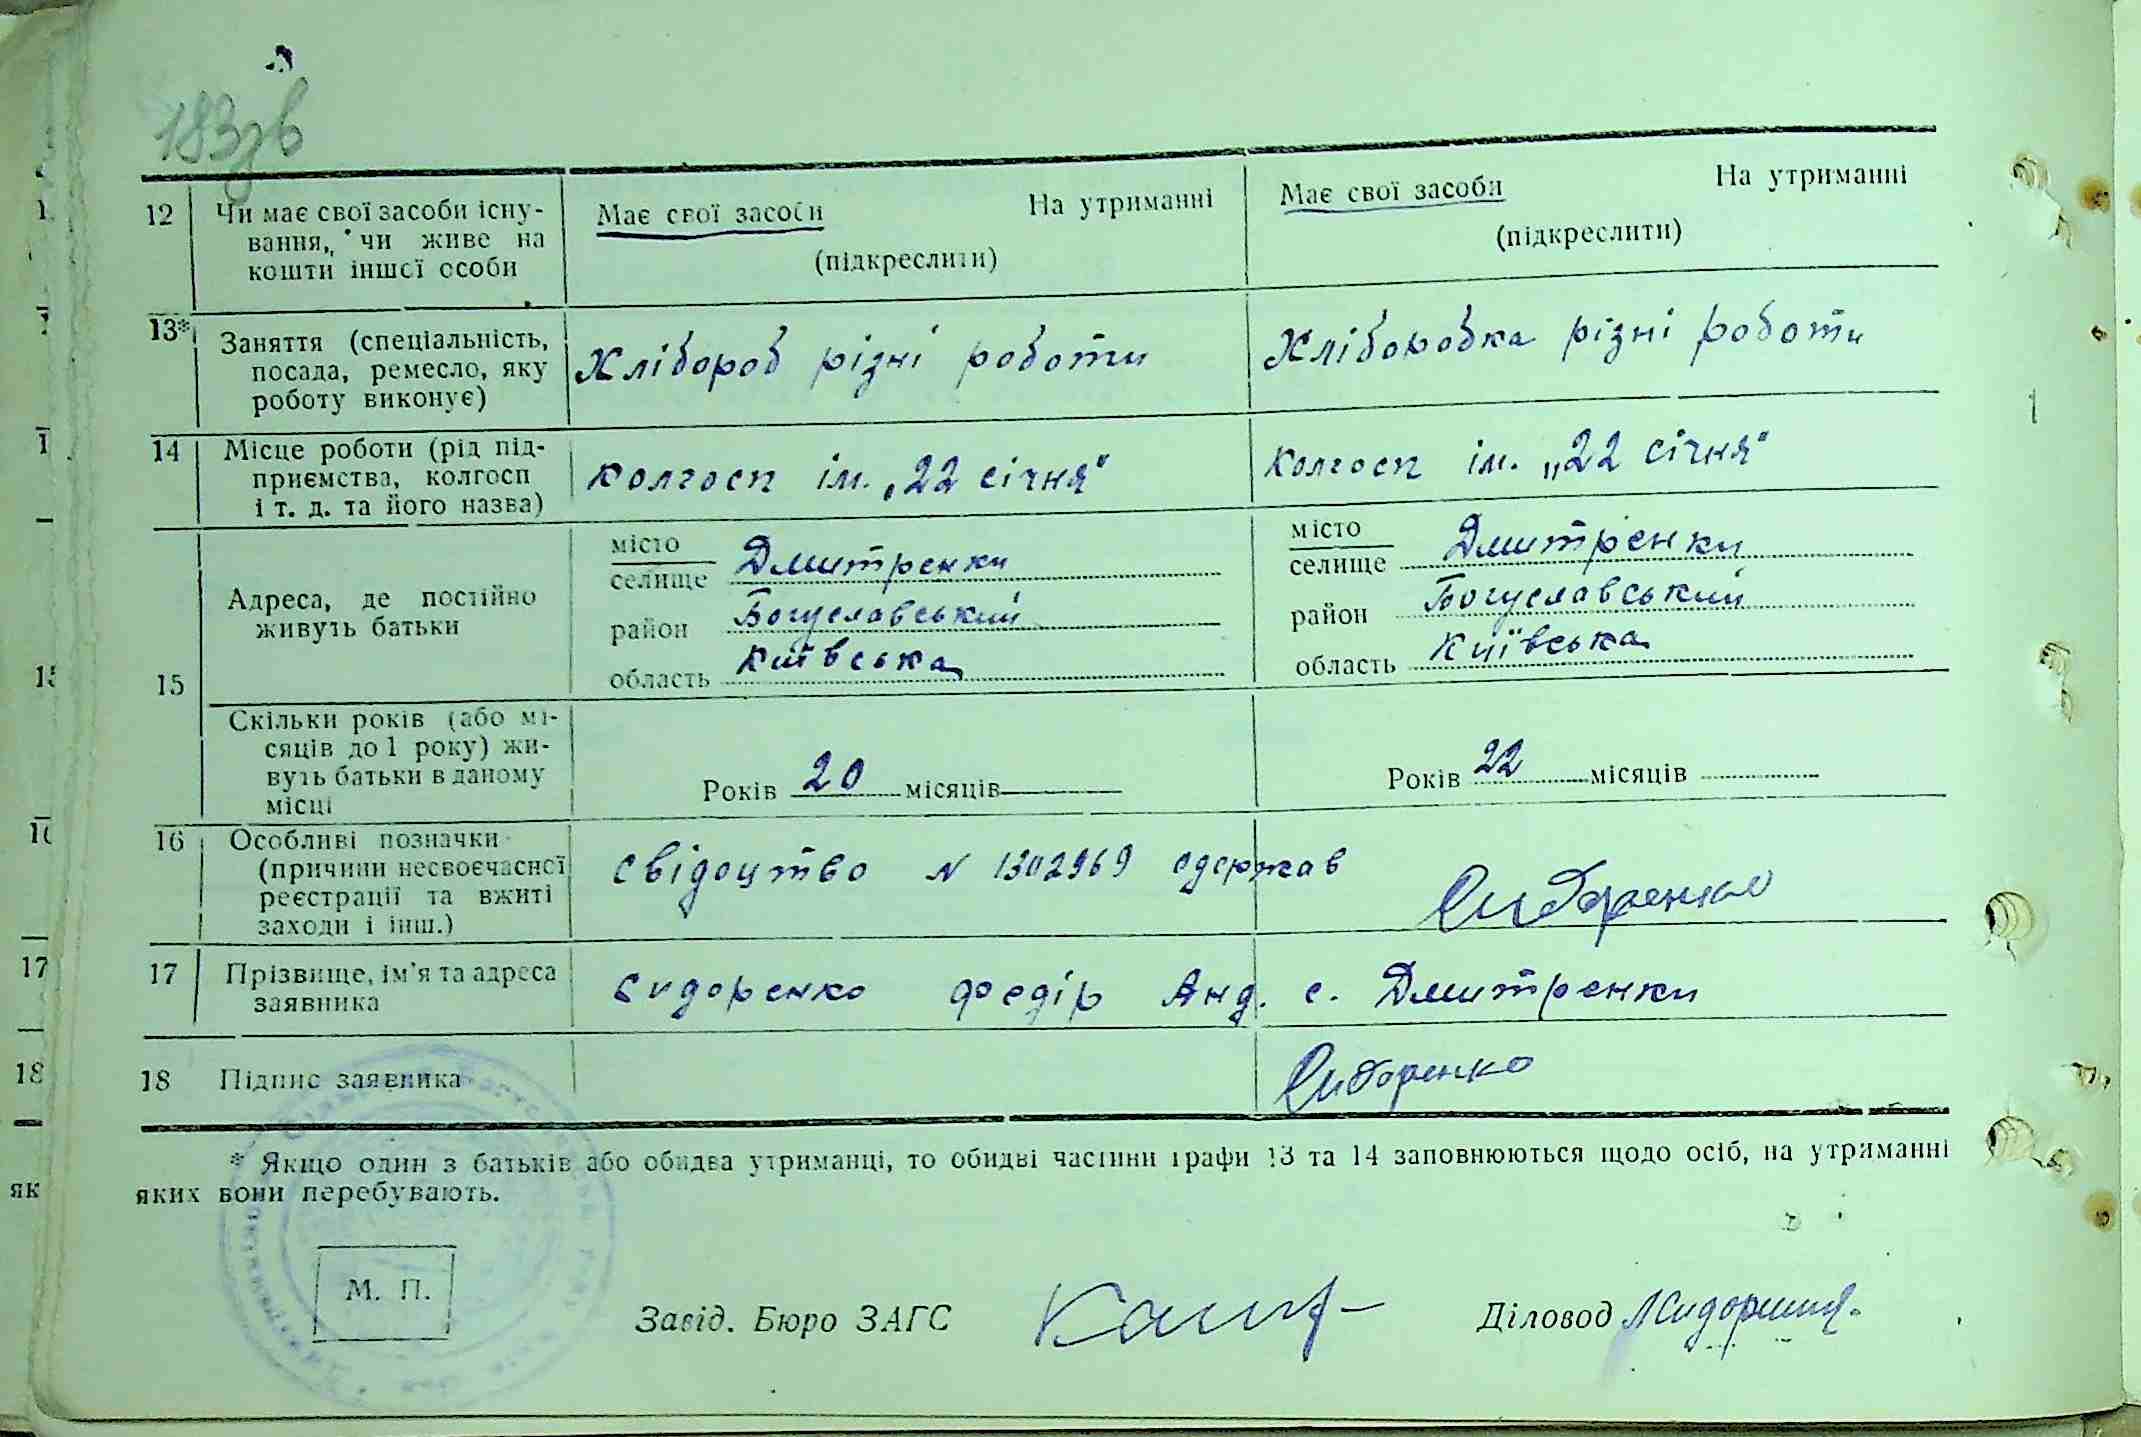 183зв
12 Чи має свої засоби існу- Має свої засоби На утриманні Має свої засоби На утриманні
вання, чи живе на (підкреслити) (підкреслити)
кошти іншої особи
13* Заняття (спеціальність, Хлібороб різні роботи Хліборобка різні роботи
посада, ремесло, яку
роботу виконує)
14 Місце роботи (рід під- колгосп ім. „22 січня" колгосп ім. „22 січня"
приємства, колгосп
і т. д. та його назва)
15 Адреса, де постійно
живуть батьки
місто місто
селище Дмитренки селище Дмитренки
район Богуславський район Богуславський
область Київська область Київська
Скільки років (або мі-
сяців до 1 року) жи-
вуть батьки в даному
місці
Років 20 місяців Років 22 місяців
16 Особливі позначки свідоцтво N 1302969 одержав Сидоренко
(причини несвоєчасної
реєстрації та вжиті
заходи і інш.)
17 Прізвище, ім'я та адреса Сидоренко Федір Анд. с. Дмитренки
заявника
18 Підпис заявника Сидоренко
* Якщо один з батьків або обидва утриманці, то обидві частини графи 13 та 14 заповнюються щодо осіб, на утриманні
яких вони перебувають.
М. П.
Завід. Бюро ЗАГС Діловод
17
18
як